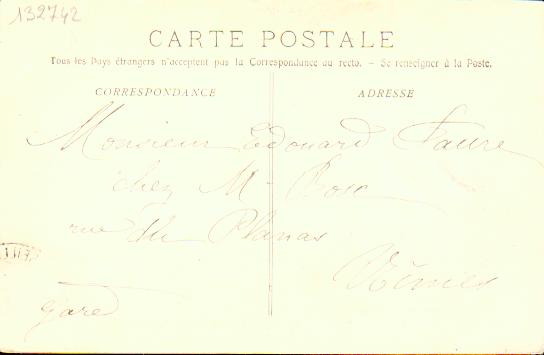 132742
CARTE POSTALE
Tous les Pays étrangers n'acceptent pas la Correspondance au recto. - Se renseigner à la Poste.
CORRESPONDANCE
ADRESSE
Monsieur Edouard Faure
chez Mr Bosc
rue du Planas
Nîmes
Gard